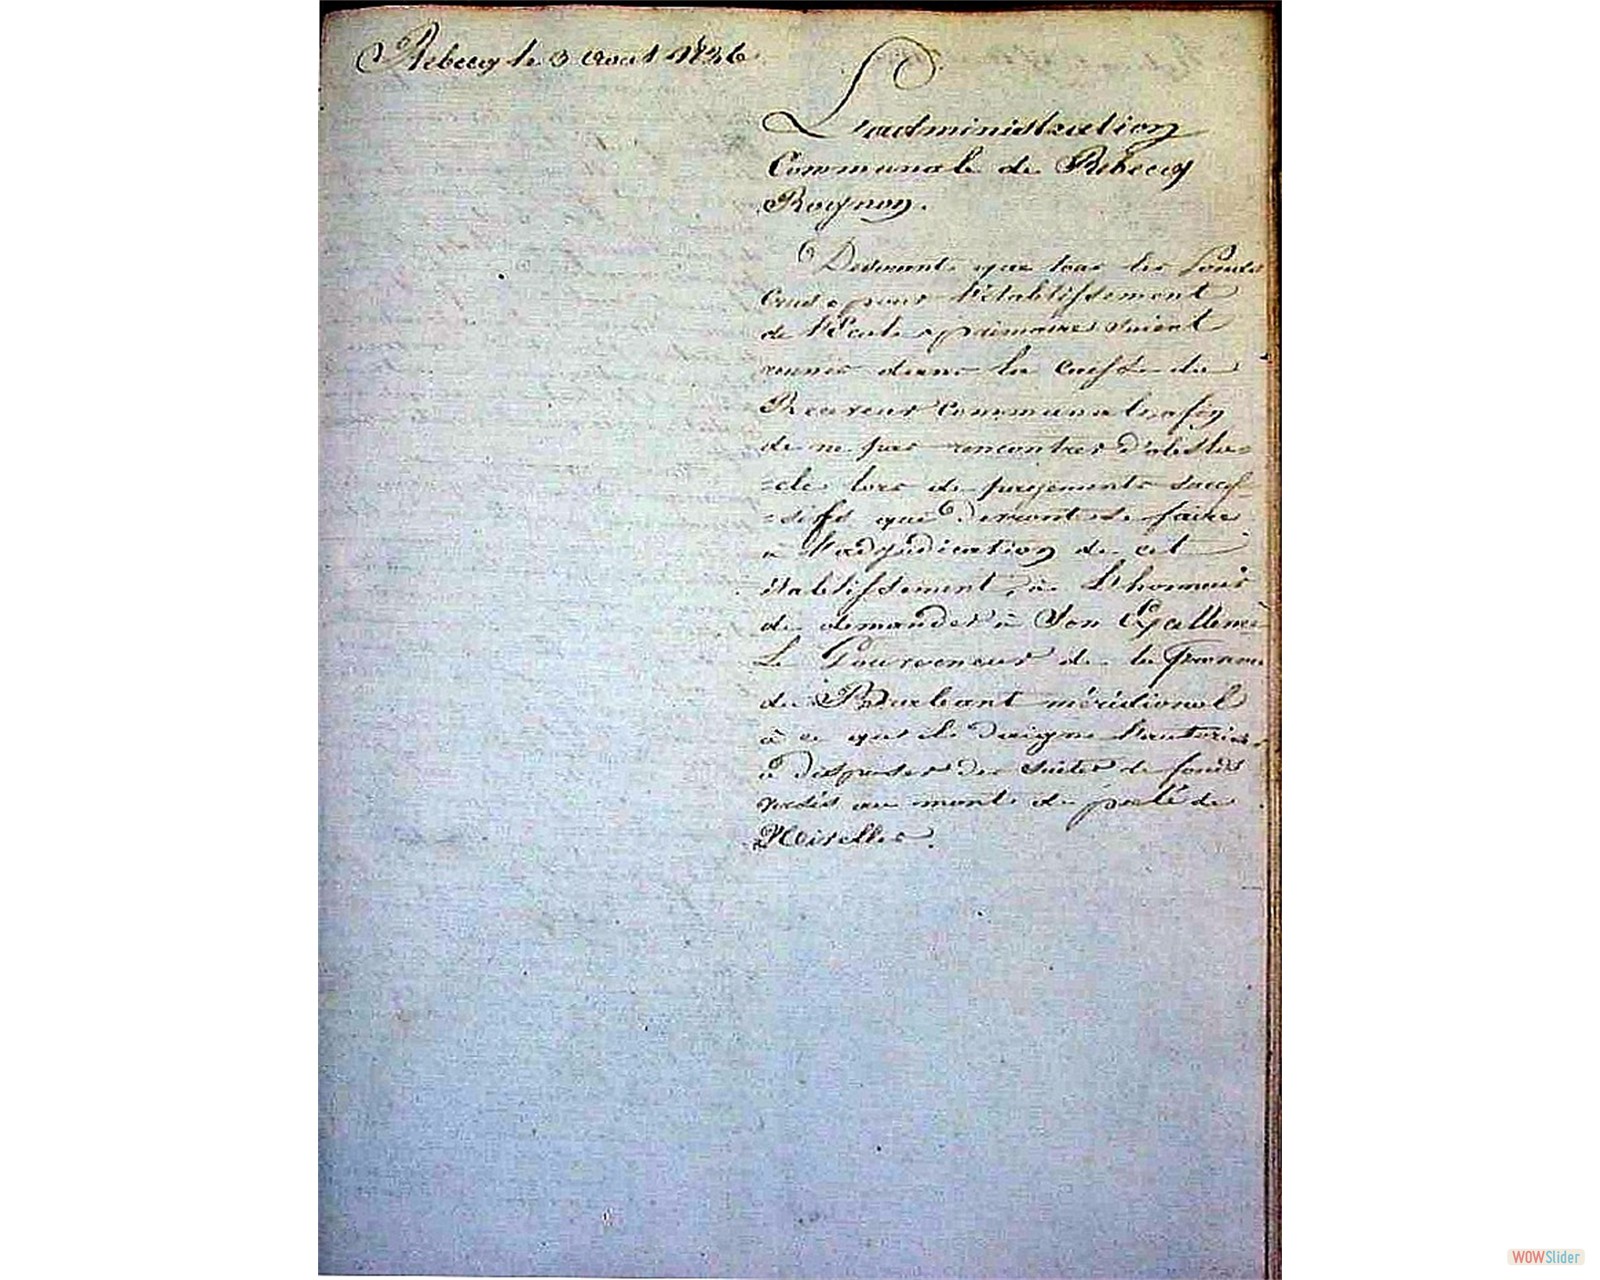 Rebecq le 3 Aout 1826
L'administration
Communale de Rebecq
Rognon.
que tous les fonds
pour l'établissement
de l'Ecole primaire soient
réunis dans la caisse du
Receveur Communal afin
de ne pas rencontrer d'obsta=
=cle lors de payements succes
=sifs qui devront se faire
à l'adjudication de cet
établissement, à l'honneur
de demander à Son Excellence
Le Gouverneur de la province
du Brabant méridional
à ce qu'il daigne l'autoriser
à disposer des suites de fonds
au mont de piété de
Nivelles.
WOWSlider